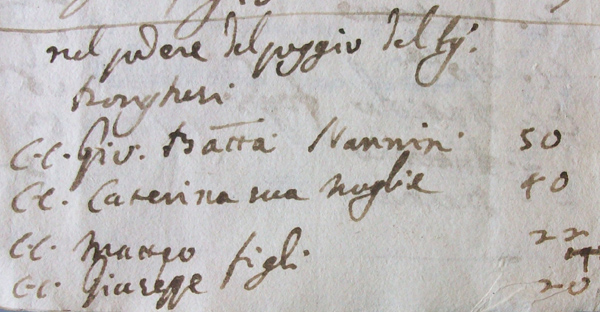 nel podere del poggio del Sg.r
Borgheri
C.C. Gio. Batta Nannini 50
C.C. Caterina sua moglie 40
C.C. Matteo figli 22
C.C. Giuseppe 20